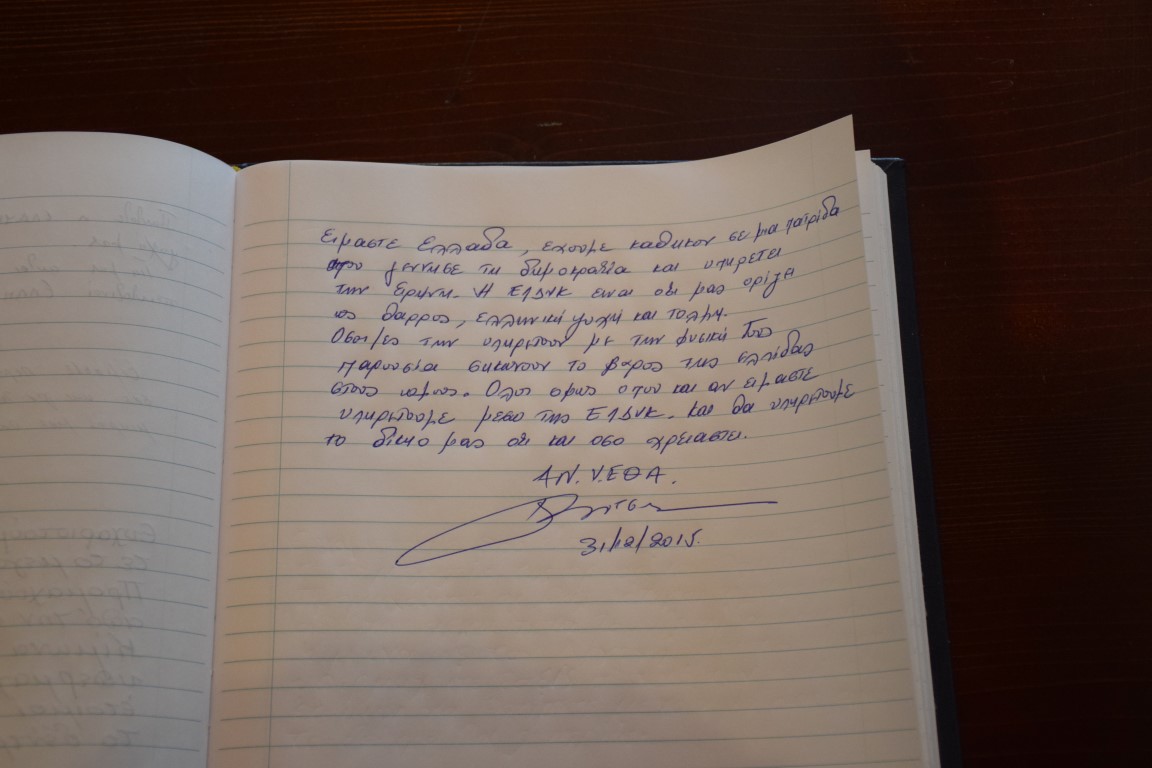 ειμαστε Ελλαδα, εχουμε καθηκον σε μια πατριδα
που γεννησε τη δημοκρατια και υπηρετει
την ειρηνη. Η ΕΛΔΥΚ ειναι οτι μας οριζει
ως θαρρος, ελληνική ψυχή και τολμη.
Οσοι/ες την υπηρετουν με την φυσική τους
παρουσία σηκωνουν το βαρος της ελπιδας
στους ωμους. Ολοι ομως οπου και αν ειμαστε
υπηρετουμε μεσω της ΕΛΔΥΚ. και θα υπηρετουμε
το δικιο μας οτι και οσο χρειαστει.
ΑΝ. Υ.ΕΘΑ.
31/12/2015.